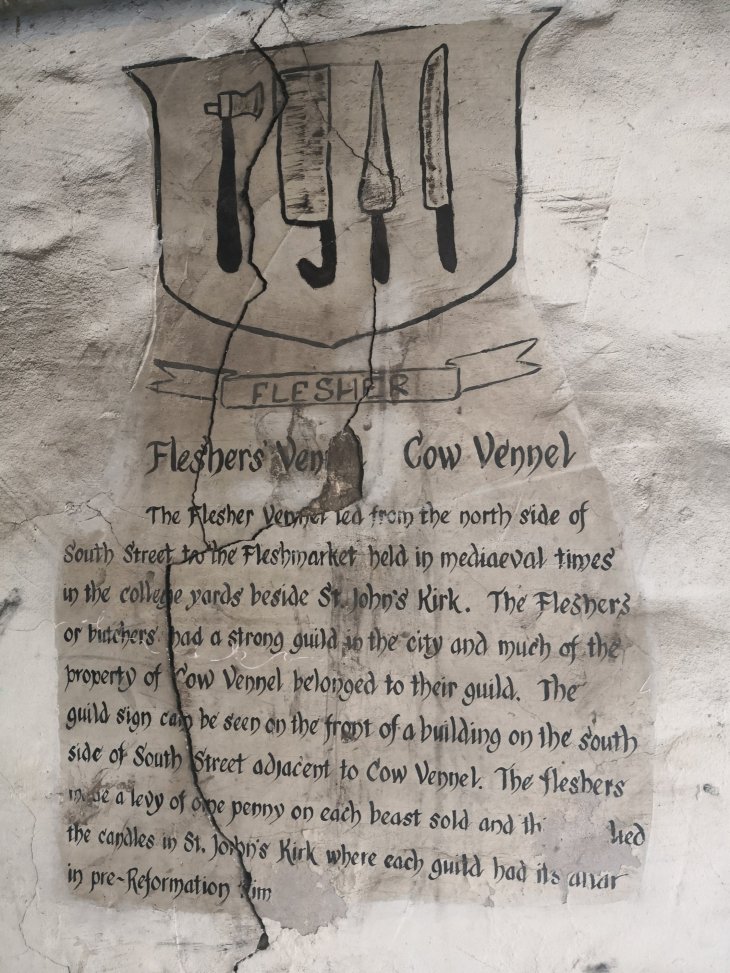 FLESHER
Fleshers' Cow Vennel
The Flesher Vennel led from the north side of
South Street to the Fleshmarket held in mediaeval times
in the college yards beside St. John's Kirk. The Fleshers
or butchers had a strong guild in the city and much of the
property of Cow Vennel belonged to their guild. The
guild sign can be seen on the front of a building on the south
side of South Street adjacent to Cow Vennel. The fleshers
a levy of one penny on each beast sold and
the candles in St. John's Kirk where each guild had its altar
in pre-Reformation